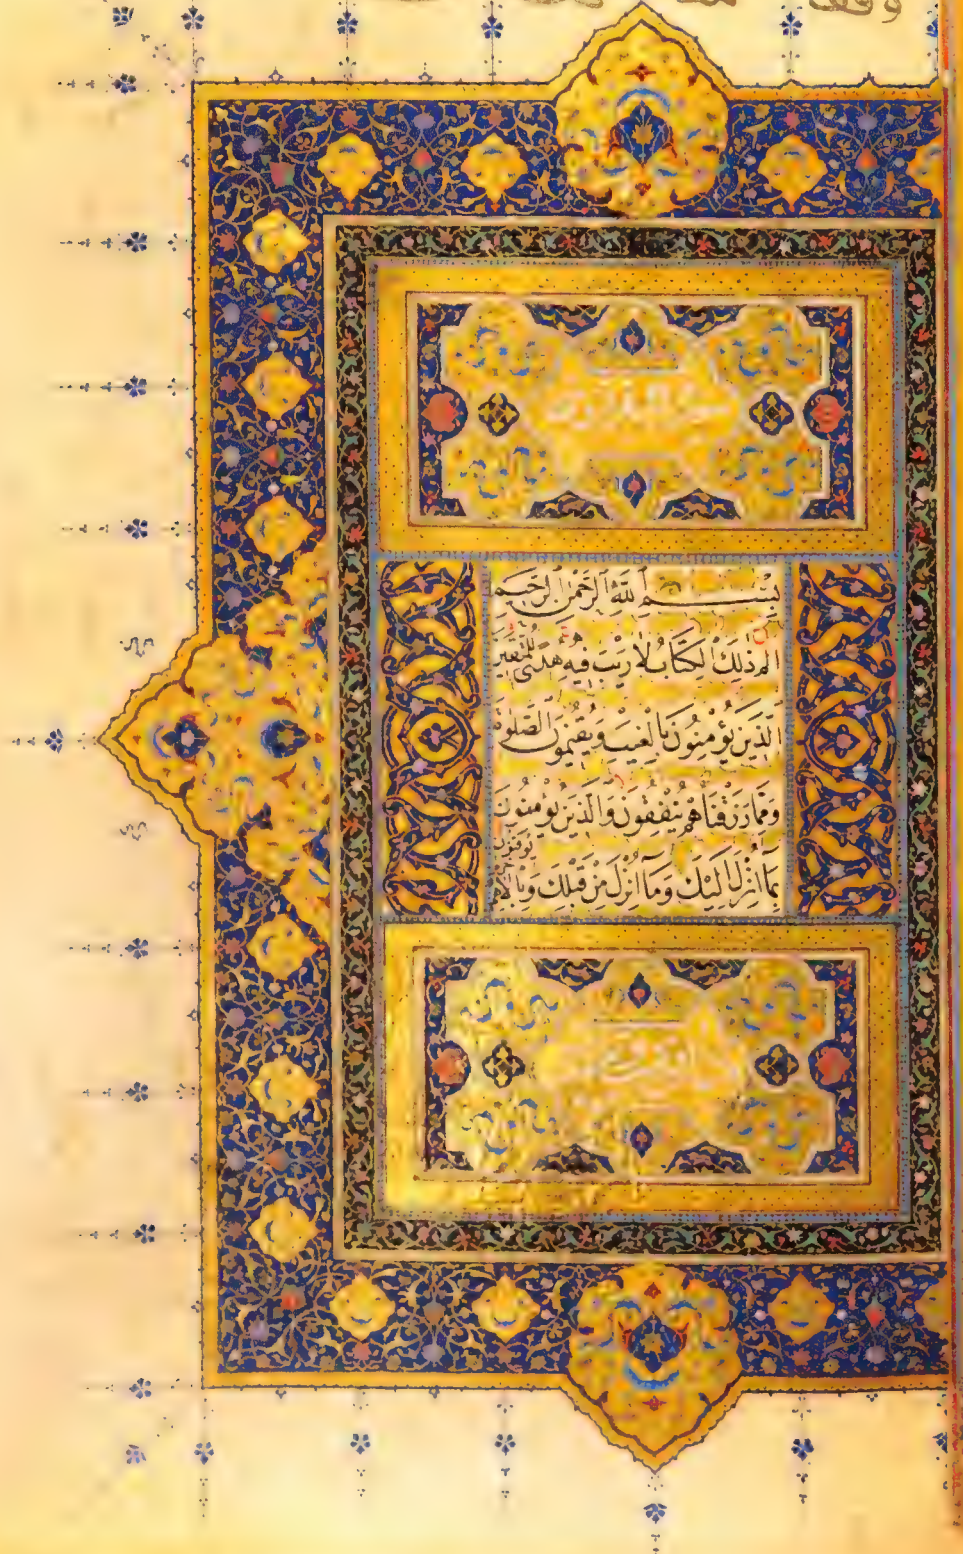 وقف
بِسْمِ اللَّهِ الرَّحْمٰنِ الرَّحِيمِ
الم ذٰلِكَ الْكِتَابُ لَا رَيْبَ فِيهِ هُدًى لِلْمُتَّقِينَ
الَّذِينَ يُؤْمِنُونَ بِالْغَيْبِ وَيُقِيمُونَ الصَّلٰوةَ
وَمِمَّا رَزَقْنَاهُمْ يُنْفِقُونَ وَالَّذِينَ يُؤْمِنُونَ
بِمَا أُنْزِلَ إِلَيْكَ وَمَا أُنْزِلَ مِنْ قَبْلِكَ وَبِالْآخِرَةِ
يوقنون